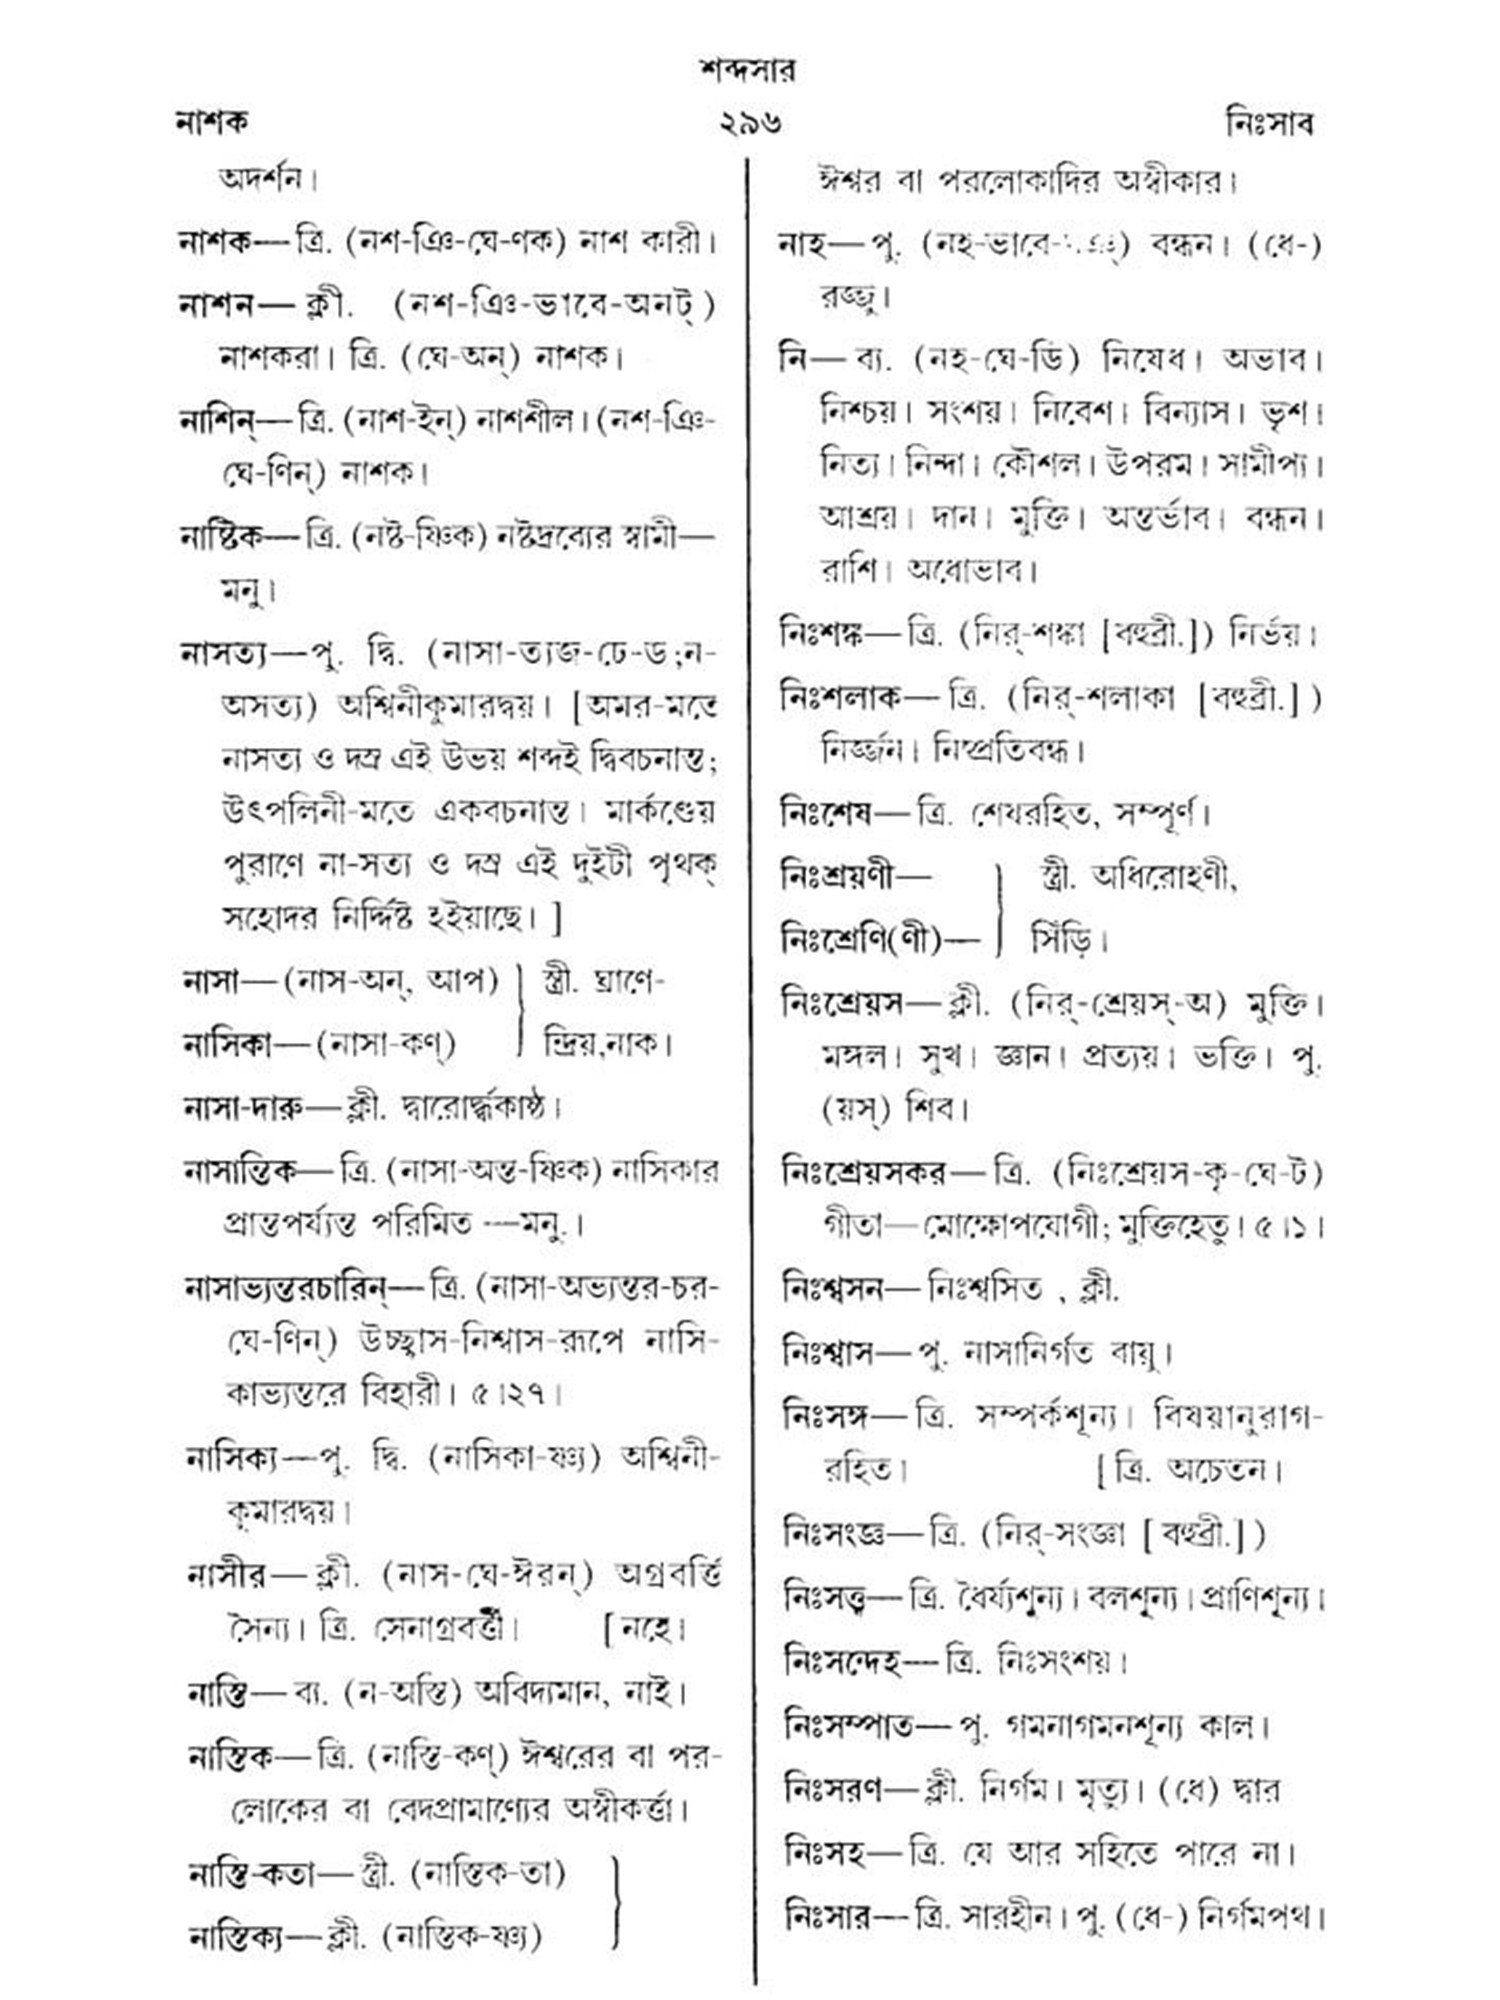 শব্দসার
নাশক ২৯৬ নিঃসাব
অদর্শন।
নাশক—ত্রি. (নশ-ঞি-ঘে-ণক) নাশ কারী।
নাশন—ক্লী. (নশ-ঞি-ভাবে-অনট্)
নাশকরা। ত্রি. (ঘে-অন্) নাশক।
নাশিন্—ত্রি. (নাশ-ইন্) নাশশীল। (নশ-ঞি-
ঘে-ণিন্) নাশক।
নাষ্টিক—ত্রি. (নষ্ট-ষ্ণিক) নষ্টদ্রব্যের স্বামী—
মনু।
নাসত্য—পু. দ্বি. (নাসা-ত্যজ-ঢে-ড;ন-
অসত্য) অশ্বিনীকুমারদ্বয়। [অমর-মতে
নাসত্য ও দস্র এই উভয় শব্দই দ্বিবচনান্ত;
উৎপলিনী-মতে একবচনান্ত। মার্কণ্ডেয়
পুরাণে না-সত্য ও দস্র এই দুইটী পৃথক্
সহোদর নির্দ্দিষ্ট হইয়াছে। ]
নাসা—(নাস-অন্, আপ) } স্ত্রী. ঘ্রাণে-
নাসিকা—(নাসা-কণ্) ন্দ্রিয়,নাক।
নাসা-দারু—ক্লী. দ্বারোর্দ্ধকাষ্ঠ।
নাসান্তিক—ত্রি. (নাসা-অন্ত-ষ্ণিক) নাসিকার
প্রান্তপর্য্যন্ত পরিমিত —মনু.।
নাসাভ্যন্তরচারিন্—ত্রি. (নাসা-অভ্যন্তর-চর-
ঘে-ণিন্) উচ্ছ্বাস-নিশ্বাস-রূপে নাসি-
কাভ্যন্তরে বিহারী। ৫।২৭।
নাসিক্য—পু. দ্বি. (নাসিকা-ষ্ণ্য) অশ্বিনী-
কুমারদ্বয়।
নাসীর—ক্লী. (নাস-ঘে-ঈরন্) অগ্রবর্ত্তি
সৈন্য। ত্রি. সেনাগ্রবর্ত্তী। [নহে।
নাস্তি—ব্য. (ন-অস্তি) অবিদ্যমান, নাই।
নাস্তিক—ত্রি. (নাস্তি-কণ্) ঈশ্বরের বা পর-
লোকের বা বেদপ্রামাণ্যের অস্বীকর্ত্তা।
নাস্তি-কতা—স্ত্রী. (নাস্তিক-তা) }
নাস্তিক্য—ক্লী. (নাস্তিক-ষ্ণ্য)
ঈশ্বর বা পরলোকাদির অস্বীকার।
নাহ—পু. (নহ-ভাবে-) বন্ধন। (ধে-)
রজ্জু।
নি—ব্য. (নহ-ঘে-ডি) নিষেধ। অভাব।
নিশ্চয়। সংশয়। নিবেশ। বিন্যাস। ভৃশ।
নিত্য। নিন্দা। কৌশল। উপরম। সামীপ্য।
আশ্রয়। দান। মুক্তি। অন্তর্ভাব। বন্ধন।
রাশি। অধোভাব।
নিঃশঙ্ক—ত্রি. (নির্-শঙ্কা [বহুব্রী.]) নির্ভয়।
নিঃশলাক—ত্রি. (নির্-শলাকা [বহুব্রী.])
নির্জ্জন। নিষ্প্রতিবন্ধ।
নিঃশেষ—ত্রি. শেষরহিত, সম্পূর্ণ।
নিঃশ্রয়ণী— } স্ত্রী. অধিরোহণী,
নিঃশ্রেণি(ণী)— সিঁড়ি।
নিঃশ্রেয়স—ক্লী. (নির্-শ্রেয়স্-অ) মুক্তি।
মঙ্গল। সুখ। জ্ঞান। প্রত্যয়। ভক্তি। পু.
(য়স্) শিব।
নিঃশ্রেয়সকর—ত্রি. (নিঃশ্রেয়স-কৃ-ঘে-ট)
গীতা—মোক্ষোপযোগী; মুক্তিহেতু। ৫।১।
নিঃশ্বসন—নিঃশ্বসিত , ক্লী.
নিঃশ্বাস—পু. নাসানির্গত বায়ু।
নিঃসঙ্গ—ত্রি. সম্পর্কশূন্য। বিষয়ানুরাগ-
রহিত। [ত্রি. অচেতন।
নিঃসংজ্ঞ—ত্রি. (নির্-সংজ্ঞা [ বহুব্রী.])
নিঃসত্ত্ব—ত্রি. ধৈর্য্যশূন্য। বলশূন্য। প্রাণিশূন্য।
নিঃসন্দেহ—ত্রি. নিঃসংশয়।
নিঃসম্পাত—পু. গমনাগমনশূন্য কাল।
নিঃসরণ—ক্লী. নির্গম। মৃত্যু। (ধে) দ্বার
নিঃসহ—ত্রি. যে আর সহিতে পারে না।
নিঃসার—ত্রি. সারহীন। পু. (ধে-) নির্গমপথ।